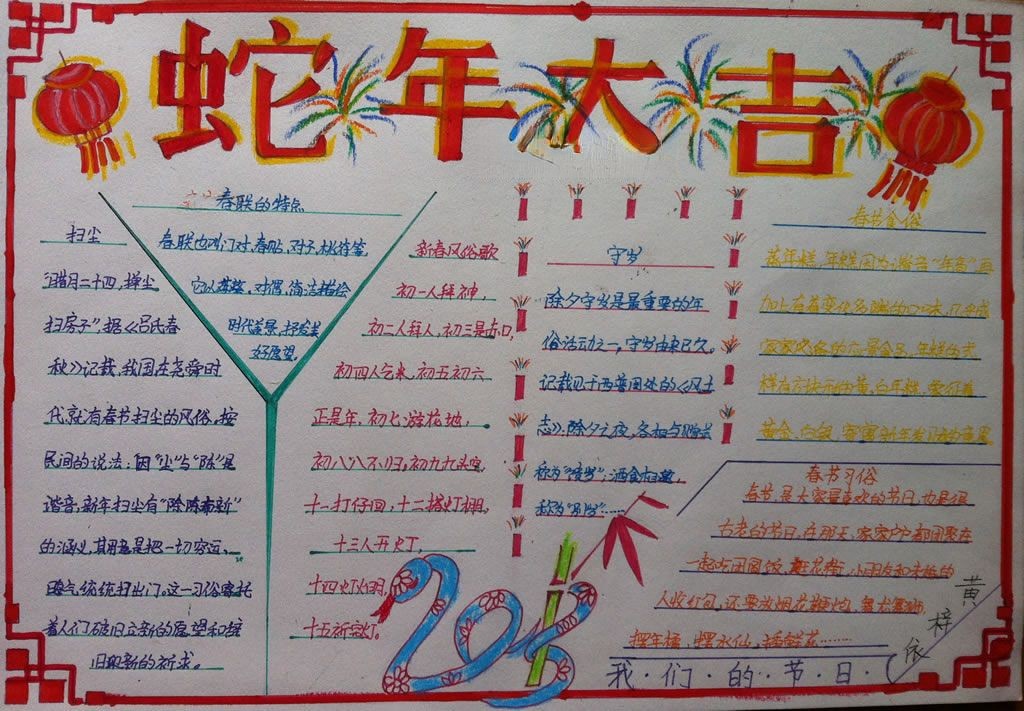 蛇年大吉
春联的特点
春联也叫门对、春贴、对子、桃符等,
它以工整、对偶、简洁描绘
时代美景,抒发美
好愿望。
扫尘
“腊月二十四,掸尘
扫房子”,据《吕氏春
秋》记载,我国在尧舜时
代就有春节扫尘的风俗。按
民间的说法:因“尘”与“陈”是
谐音,新年扫尘有“除陈布新”
的涵义,其用意是把一切穷运、
晦气统统扫出门。这一习俗寄托
着人们破旧立新的愿望和辞
旧迎新的祈求。
新春风俗歌
初一人拜神,
初二人拜人,初三是赤口,
初四人乞米,初五初六
正是年,初七游花地,
初八八不归,初九九头空,
十一打仔回,十二搭灯棚,
十三人开灯,
十四灯火明,
十五祈完灯。
守岁
除夕守岁是最重要的年
俗活动之一,守岁由来已久。
记载见于西晋周处的《风土
志》:除夕之夜,各相与赠送
称为“馈岁”;酒食相邀,
称为“别岁”……
春节食俗
蒸年糕,年糕因为谐音“年高”,再
加上有着变化多端的口味,几乎成
家家必备的应景食品。年糕的式
样有方块形的黄、白年糕,象征着
黄金、白银,寄寓新年发财的意思
春节习俗
春节,是大家最喜欢的节日,也是很
古老的节日,在那天,家家户户都团聚在
一起吃团圆饭,逛花街,小朋友和未婚的
人收红包,还要放烟花鞭炮、舞龙舞狮,
摆年橘,摆水仙,插鲜花……
2013
我·们·的·节·日
黄梓依